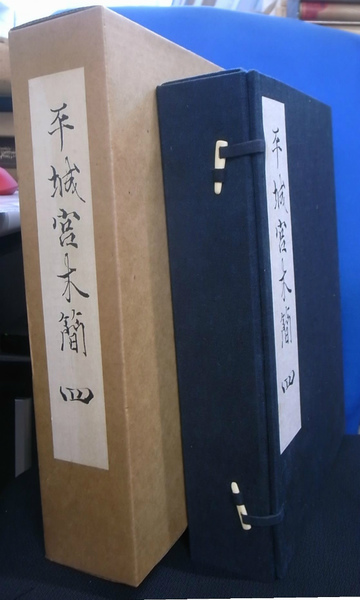 平城宮木簡 四
平城宮木簡 四